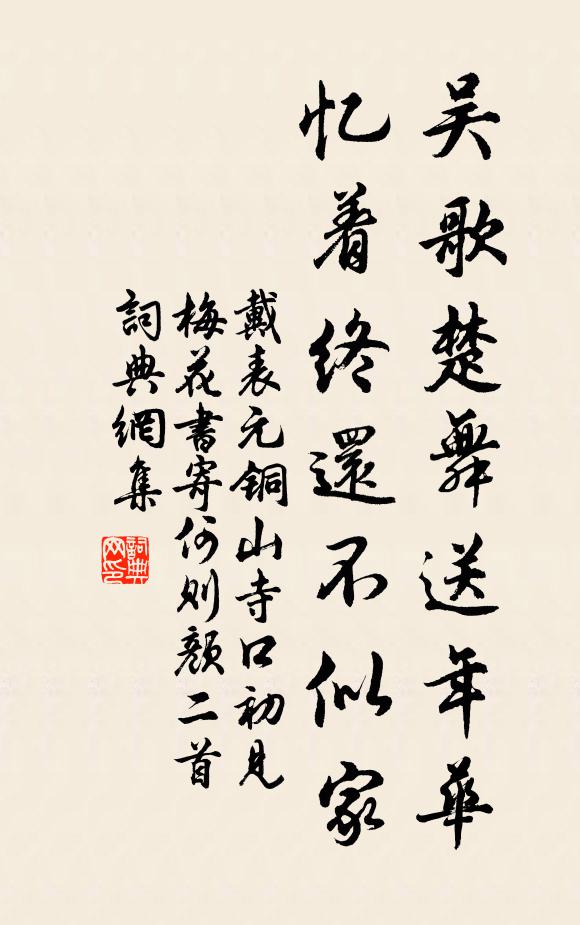 吴歌楚舞送年華
忆着终還不似家
戴表元铜山寺口初見
梅花書寄何则颜二首
詞典網集
詞典网印